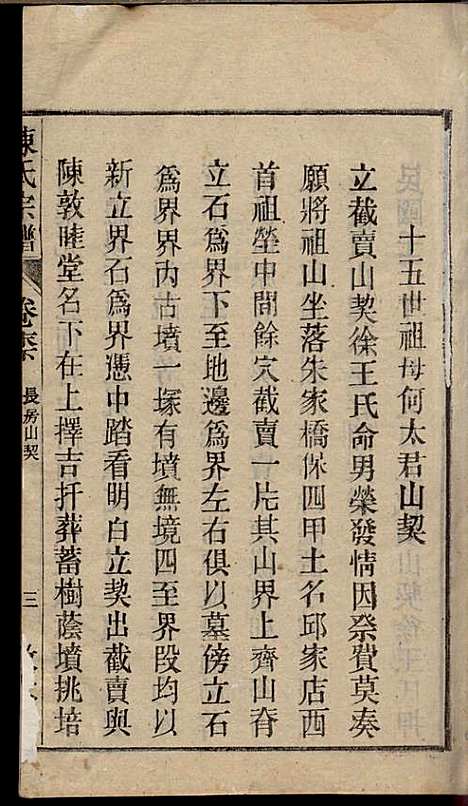 十五世祖母何太君山契
立截賣山契徐王氏命男榮發情因祭費莫湊
願將祖山坐落朱家橋保四甲土名邱家店西
首祖塋中間餘穴截賣一片其山界上齊山脊
立石爲界下至地邊爲界左右俱以墓傍立石
爲界界內古墳一塚有墳無境四至界段均以
新立界石爲界憑中踏看明白立契出截賣與
陳敦睦堂名下在上擇吉扦葬蓄樹蔭墳挑培
陳氏宗譜
長房山契
三